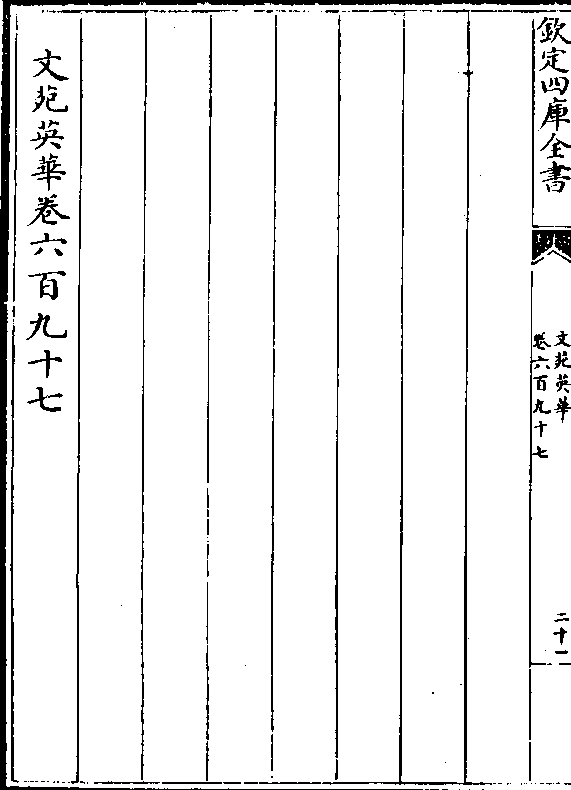 欽定四庫全書
文苑英華
卷六百九十七
二十一
文苑英華卷六百九十七